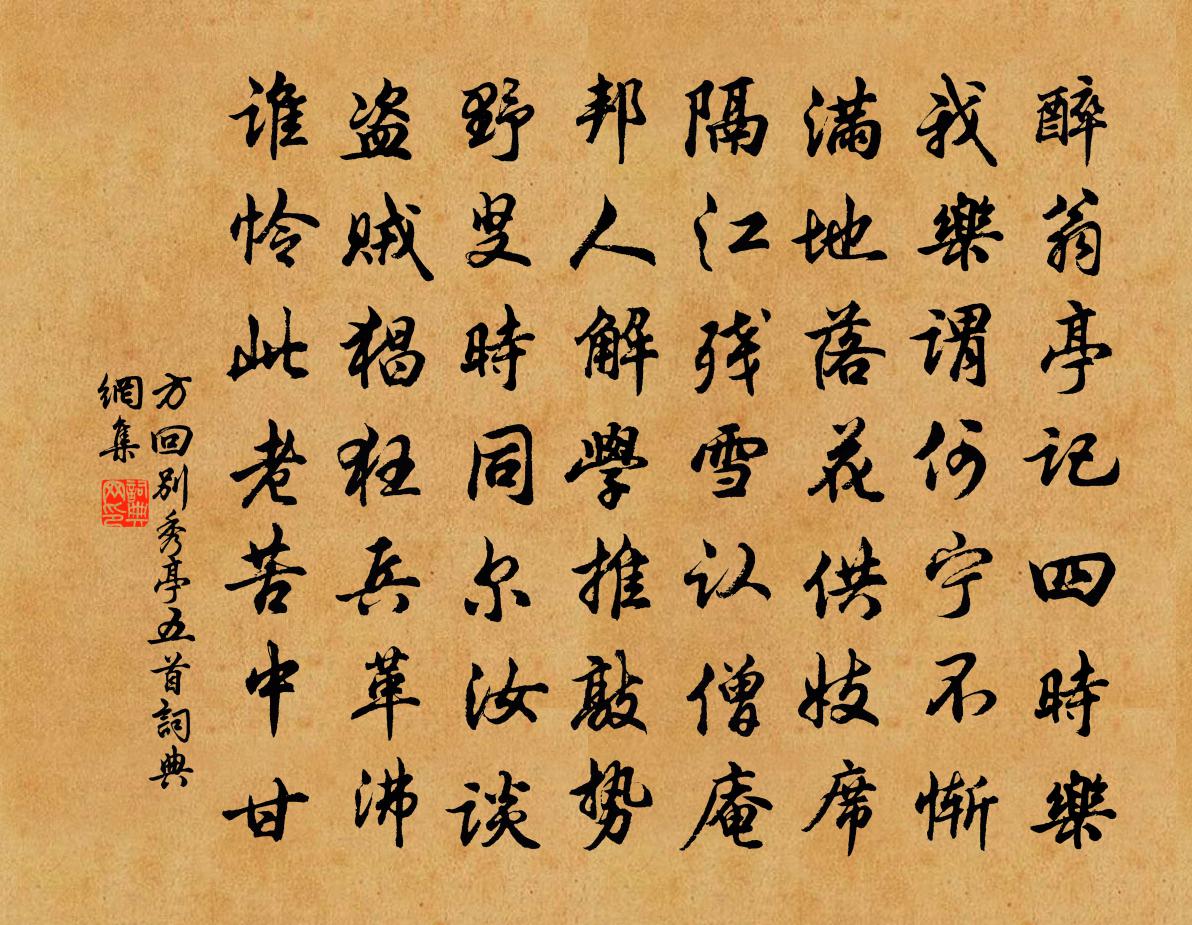 醉翁亭记四時樂
我樂謂何宁不惭
满地落花供妓席
隔江残雪认僧庵
邦人解學推敲势
野叟時同尔汝谈
盗贼猖狂兵革沸
谁怜此老苦中甘
方回别秀亭五首詞典
網集
詞典
网印